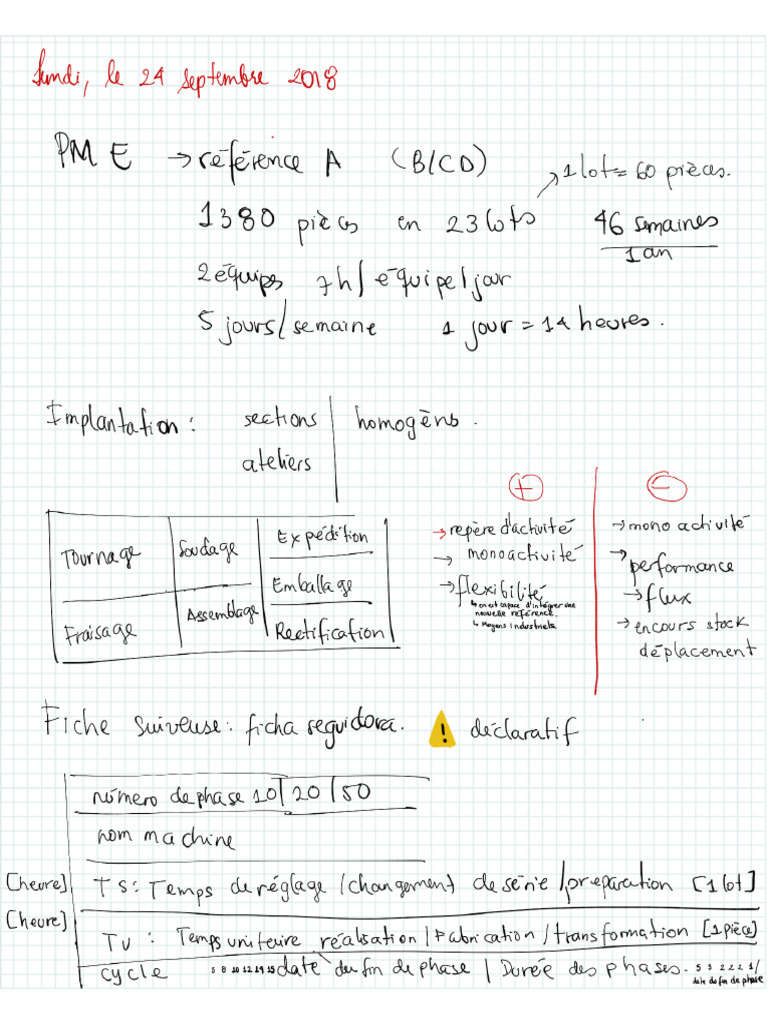 Lundi, le 24 septembre 2018
PME → référence A (B/CD)
↗ 1 lot = 60 pièces.
1380 pièces en 23 lots
46 semaines
1 an
2 équips 7h / équipe / jour
5 jours / semaine 1 jour = 14 heures.
Implantation: sections homogèns.
ateliers
+ −
Tournage Soudage Expédition
Emballage
Fraisage Assemblage Rectification
→ repère d'activité
→ monoactivité
→ flexibilité
↳ on est capace d'intégrer une
nouvelle reférence.
↳ Moyens industriels
→ mono activité
→ performance
→ flux
→ encours stock
déplacement
Fiche suiveuse: ficha seguidora. ! déclaratif
número de phase 10 / 20 / 50
nom machine
[heure] TS: Temps de réglage / changement de série / preparation [1 lot]
[heure] TU: Temps unituire réalisation / Fabrication / transformation [1 pièce]
cycle 5 8 10 12 14 15 date du fin de phase / Durée des phases. 5 3 2 2 2 1 /
date do fin de phase